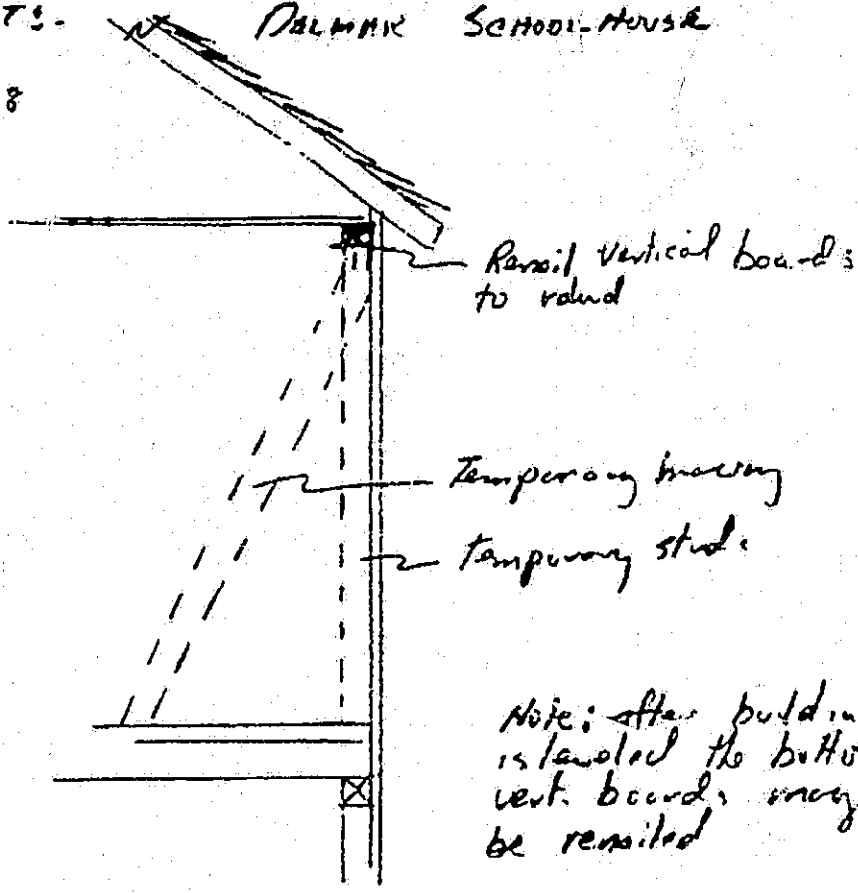 DALMAR SCHOOL-HOUSE
8
Renail vertical boards
to
Temporary bracing
Temporary studs
Note: after buildin
is leveled the botto
vert. boards may
be renailed